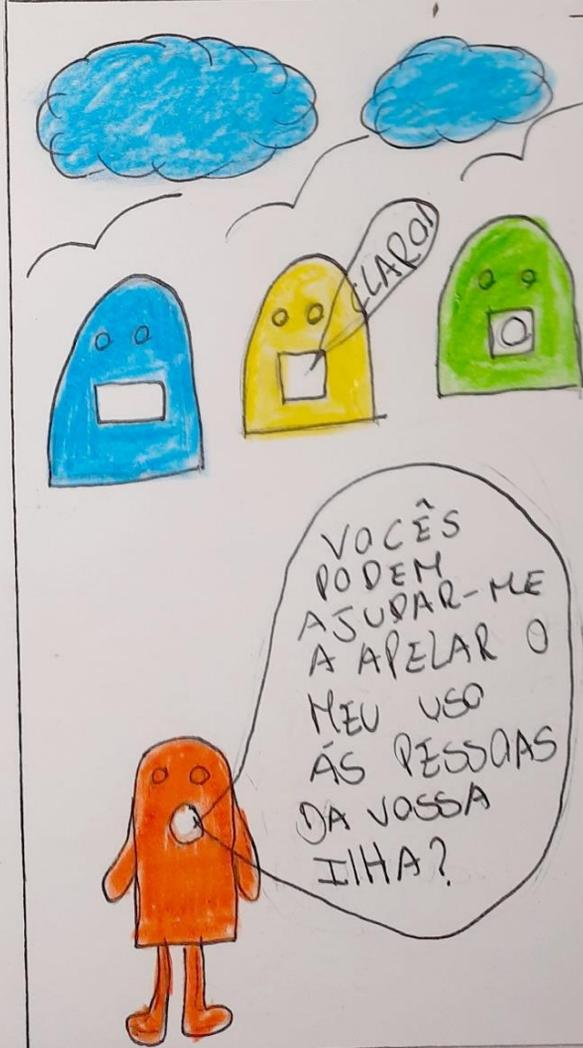 CLARO!
VOCÊS
PODEM
AJUDAR-ME
A APELAR O
MEU USO
ÁS PESSOAS
DA VOSSA
IlHA?